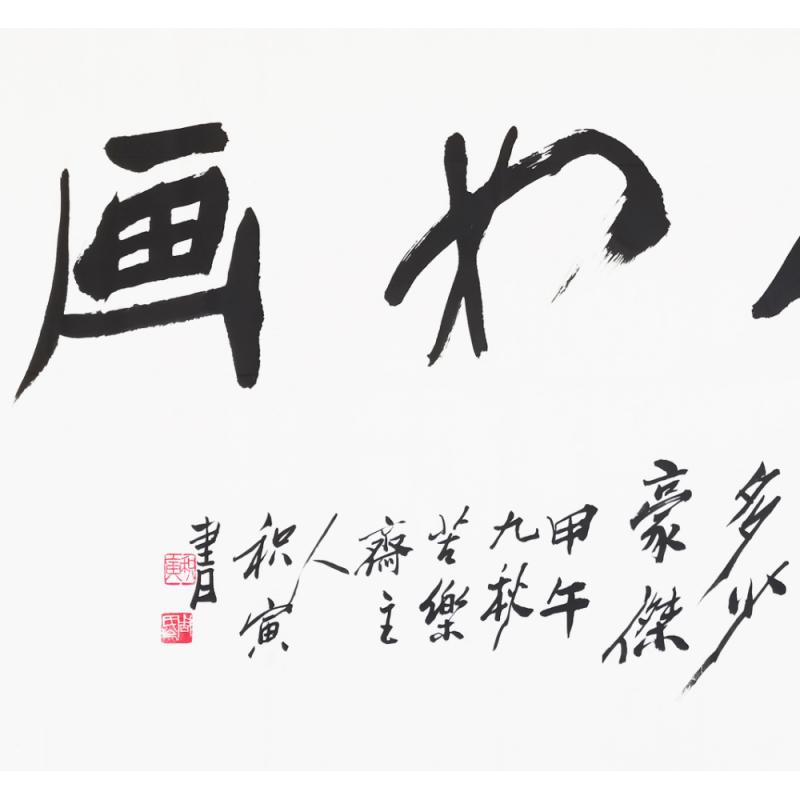 如画
多少
豪傑
甲午
九秋
苦樂
齋主
人
积寅
書